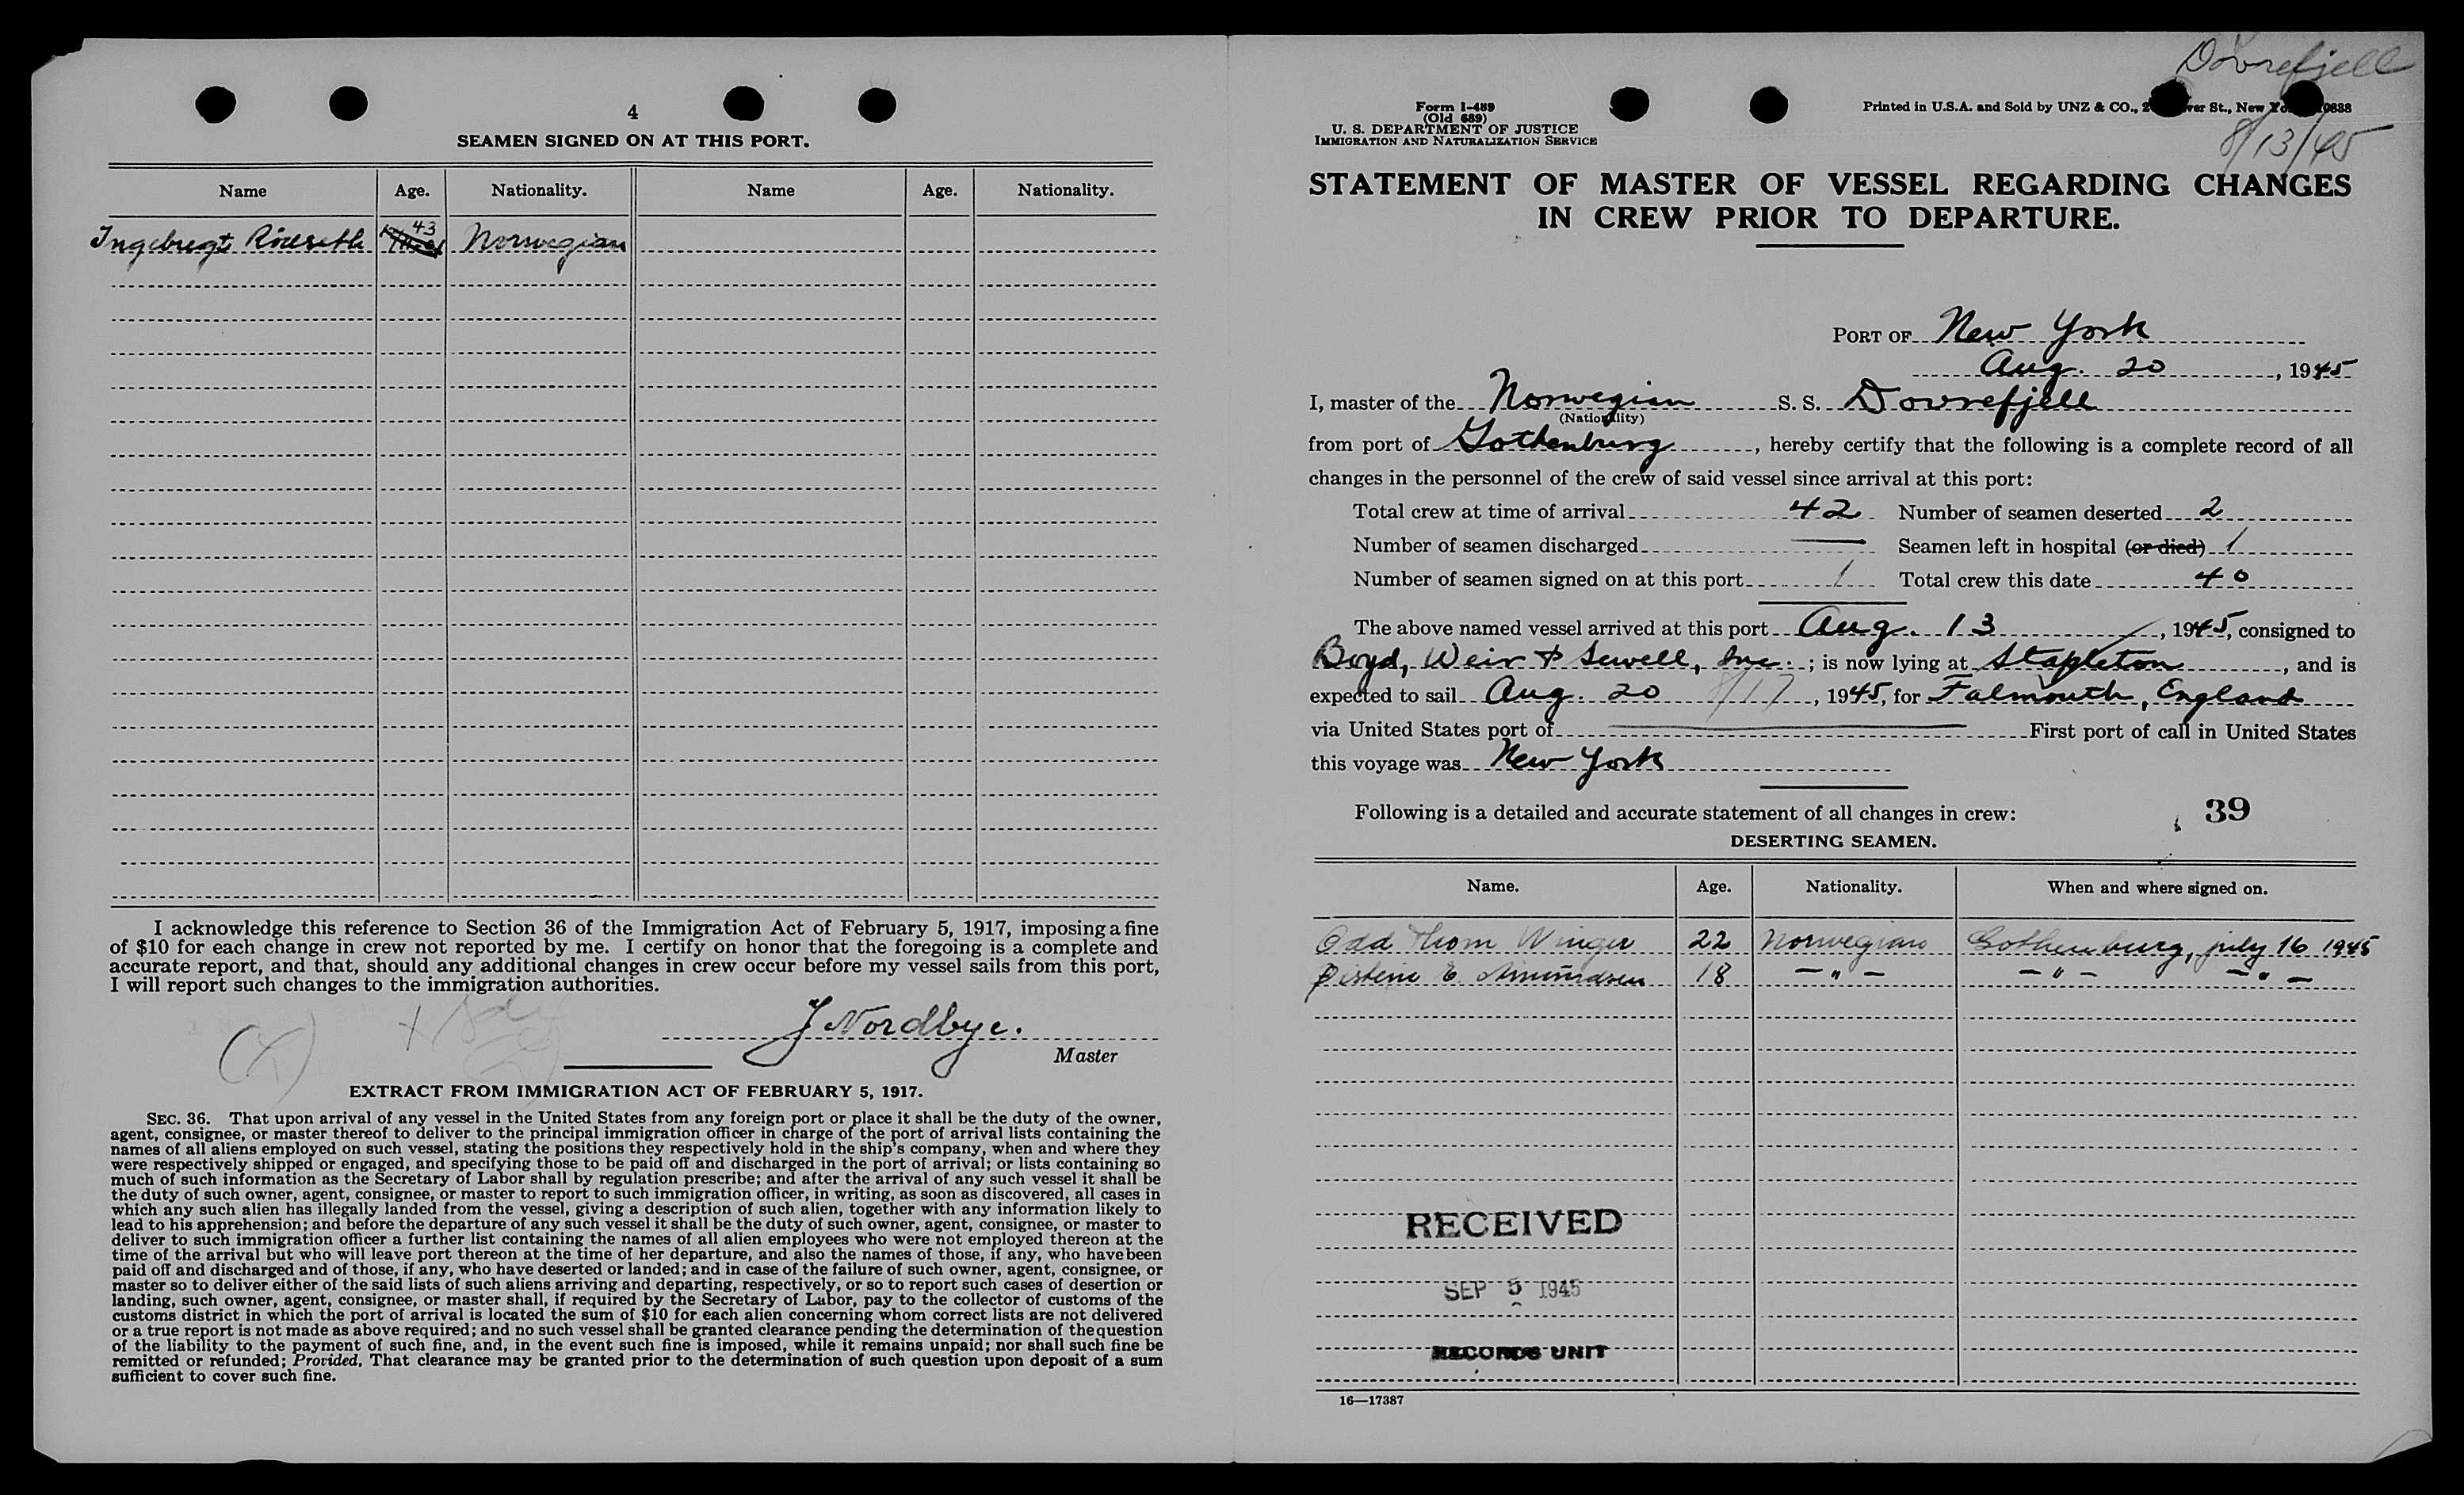 4
SEAMEN SIGNED ON AT THIS PORT.
Name Age. Nationality. Name Age. Nationality.
Ingebregt 43 Norwegian
I acknowledge this reference to Section 36 of the Immigration Act of February 5, 1917, imposing a fine
of $10 for each change in crew not reported by me. I certify on honor that the foregoing is a complete and
accurate report, and that, should any additional changes in crew occur before my vessel sails from this port,
I will report such changes to the immigration authorities.
J Nordbye.
Master
EXTRACT FROM IMMIGRATION ACT OF FEBRUARY 5, 1917.
SEC. 36. That upon arrival of any vessel in the United States from any foreign port or place it shall be the duty of the owner,
agent, consignee, or master thereof to deliver to the principal immigration officer in charge of the port of arrival lists containing the
names of all aliens employed on such vessel, stating the positions they respectively hold in the ship's company, when and where they
were respectively shipped or engaged, and specifying those to be paid off and discharged in the port of arrival; or lists containing so
much of such information as the Secretary of Labor shall by regulation prescribe; and after the arrival of any such vessel it shall be
the duty of such owner, agent, consignee, or master to report to such immigration officer, in writing, as soon as discovered, all cases in
which any such alien has illegally landed from the vessel, giving a description of such alien, together with any information likely to
lead to his apprehension; and before the departure of any such vessel it shall be the duty of such owner, agent, consignee, or master to
deliver to such immigration officer a further list containing the names of all alien employees who were not employed thereon at the
time of the arrival but who will leave port thereon at the time of her departure, and also the names of those, if any, who have been
paid off and discharged and of those, if any, who have deserted or landed; and in case of the failure of such owner, agent, consignee, or
master so to deliver either of the said lists of such aliens arriving and departing, respectively, or so to report such cases of desertion or
landing, such owner, agent, consignee, or master shall, if required by the Secretary of Labor, pay to the collector of customs of the
customs district in which the port of arrival is located the sum of $10 for each alien concerning whom correct lists are not delivered
or a true report is not made as above required; and no such vessel shall be granted clearance pending the determination of the question
of the liability to the payment of such fine, and, in the event such fine is imposed, while it remains unpaid; nor shall such fine be
remitted or refunded; Provided, That clearance may be granted prior to the determination of such question upon deposit of a sum
sufficient to cover such fine.
Dovrefjell
Form I-489
(Old 689)
U. S. DEPARTMENT OF JUSTICE
IMMIGRATION AND NATURALIZATION SERVICE
Printed in U.S.A. and Sold by UNZ & CO., St., New
8/13/45
STATEMENT OF MASTER OF VESSEL REGARDING CHANGES
IN CREW PRIOR TO DEPARTURE.
PORT OF New York
Aug. 20, 1945
I, master of the Norwegian S. S. Dovrefjell
(Nationality)
from port of Gothenburg, hereby certify that the following is a complete record of all
changes in the personnel of the crew of said vessel since arrival at this port:
Total crew at time of arrival 42 Number of seamen deserted 2
Number of seamen discharged — Seamen left in hospital (or died) 1
Number of seamen signed on at this port 1 Total crew this date 40
The above named vessel arrived at this port Aug. 13, 1945, consigned to
Boyd, Weir & Sewell, Inc.; is now lying at Stapleton, and is
expected to sail Aug. 20 8/17, 1945, for Falmouth, England
via United States port of — First port of call in United States
this voyage was New York
Following is a detailed and accurate statement of all changes in crew:
39
DESERTING SEAMEN.
Name. Age. Nationality. When and where signed on.
Odd Thom Winger 22 Norwegian Gothenburg, july 16 1945
E. Amundsen 18 — " — — " — — " —
RECEIVED
SEP 5 1945
RECORDS UNIT
16—17387